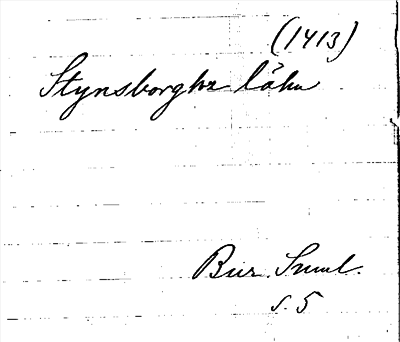 (1413)
Stynsborghe låhn
Bur. Suml.
s. 5